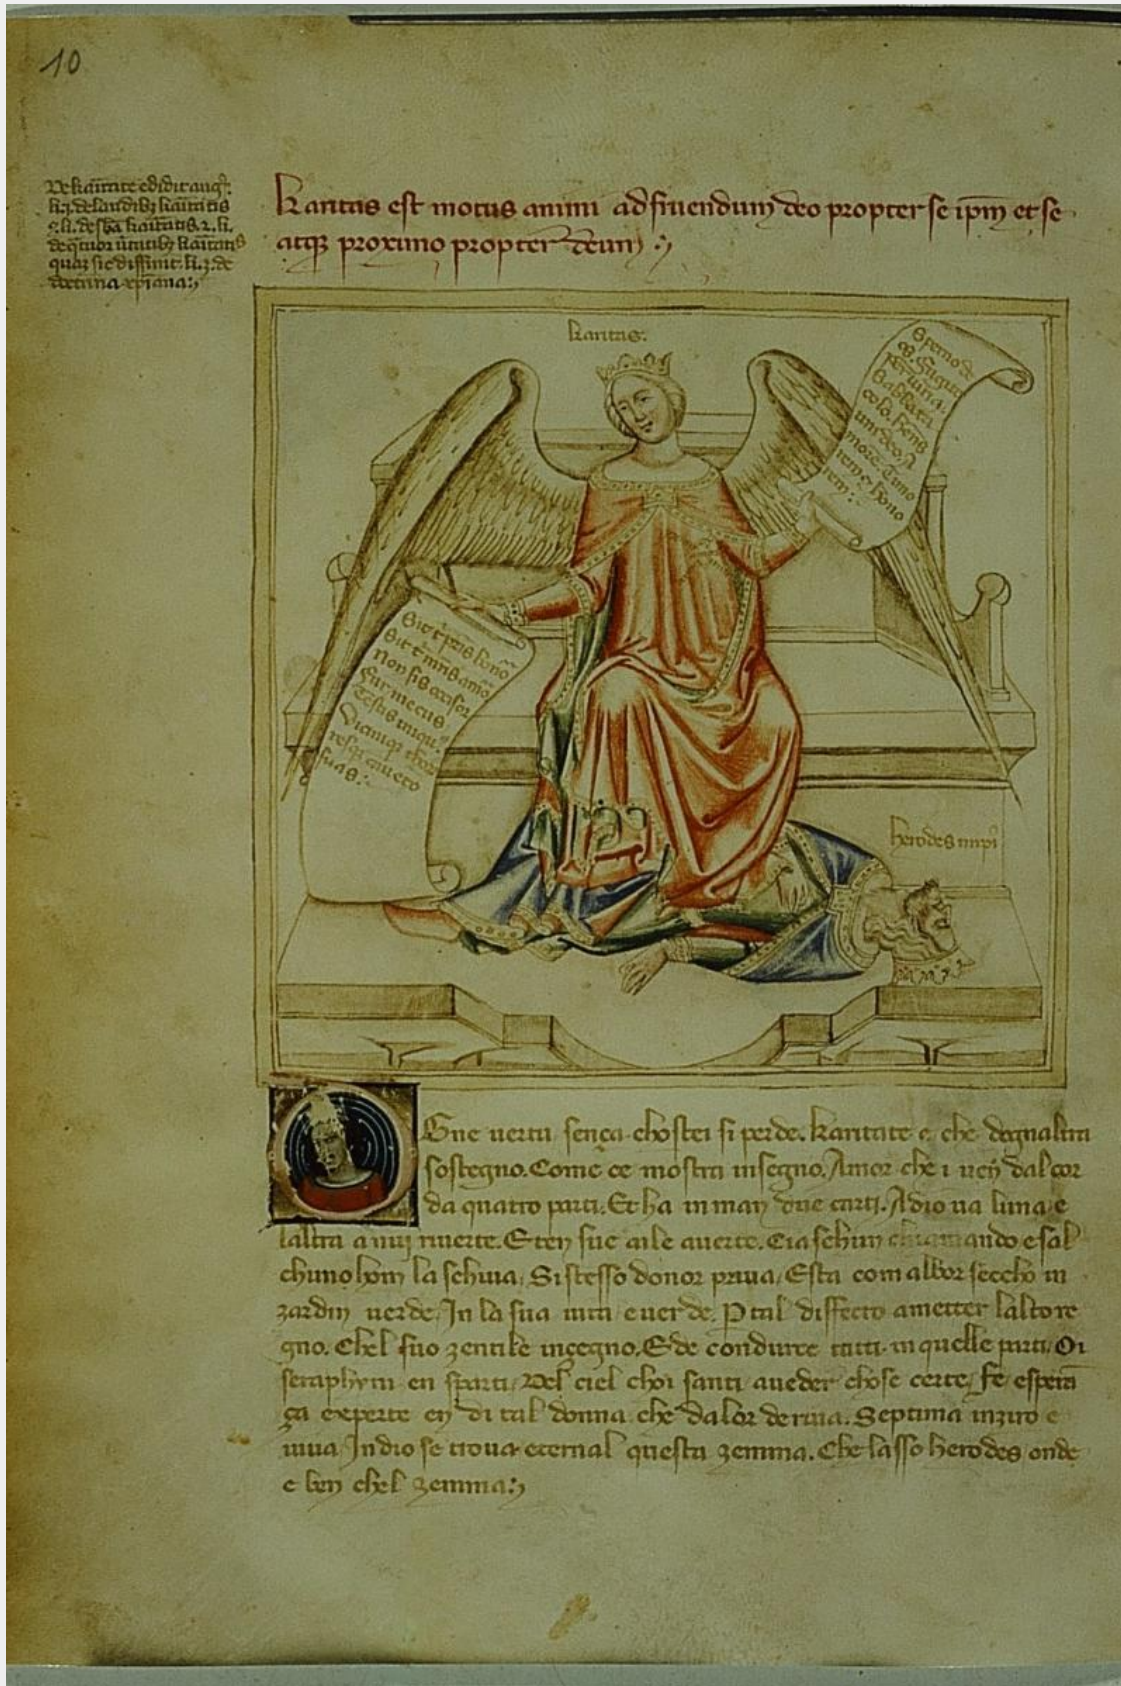 10
De karitate edidit aug9.
li. j. de laudibꝫ karitatis
karitatis. 2. li.
de q̄tuor karitatis
quaȝ sic diffinit. li. 3. de
doctrina xp̄iana:,
Karitas est motus animi ad fruendum deo propter se ip̄m et se
atqꝫ proximo propter deum :,
karitas.
Sperno de
os.
periuria.
Sabbata
colo. hens
uni deo. A
more. Timo
rem ⁊ hono
rem:
Sit t̄ pr̄is honō
Sit t̄ mr̄is amō
Non sis occisor
Fur mecus
Testis iniqu9
Vicinique thoꝝ
resqꝫ caueto
suas:.
herodes impi9
Gne uertu sença chostei si perde. Karitate e che dogn altra
sostegno. Come ce mostra insegno. Amor che i ven dal cor
da quatro parti. Et ha in man due carti. A dio ua luna e
laltra a nuj riuerte. E ten sue aile auerte. Cia schun chiamando e sal
chuno hom la schiua, Si stesso donor priua, Esta com albor seccho in
zardin uerde, In la sua uita e uerde. P tal diffecto ametter lalto re
gno. Chel suo zentile inçegno. E de condurce tutti in quelle parti, Oi
seraphyn en sparti, Del ciel choi santi a ueder chose certe, Fe espera
ça experte en di tal donna che da lor deriua. Septima in ziro e
uiua, In dio se troua eternal questa zemma. Che lasso herodes onde
e ben chel zemma:,